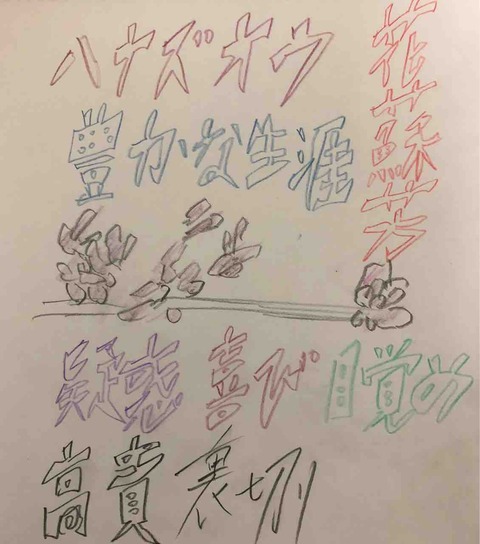 ハナズオウ
花蘇芳
豊かな生涯
疑惑 喜び 目覚め
高貴 裏切り